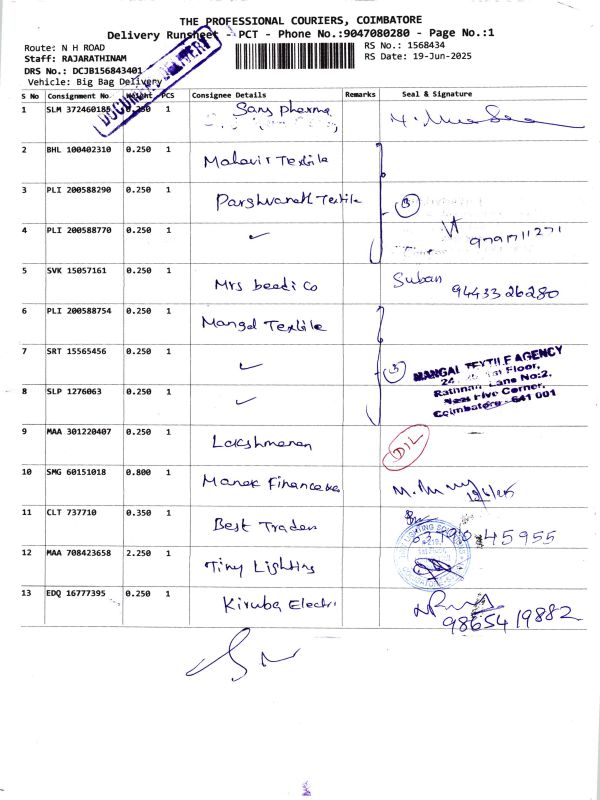 THE PROFESSIONAL COURIERS, COIMBATORE
Delivery Runsheet - PCT - Phone No.:9047080280 - Page No.:1
Route: N H ROAD
RS No.: 1568434
Staff: RAJARATHINAM
RS Date: 19-Jun-2025
DRS No.: DCJB156843401
Vehicle: Big Bag Delivery
DOCUMENT DELIVERY
S No Consignment No. Weight PCS Consignee Details Remarks Seal & Signature
1 SLM 372460185 0.250 1 Sans pharma
2 BHL 100402310 0.250 1 Mahavir Textile
3 PLI 200588290 0.250 1 Parshvanath Textile 3
4 PLI 200588770 0.250 1 ✓ 9791711271
5 SVK 15057161 0.250 1 Mrs beedi Co Suban 9443326280
6 PLI 200588754 0.250 1 Mangal Textile
7 SRT 15565456 0.250 1 ✓ 3
MANGAL TEXTILE AGENCY
1st Floor,
Rathnan Lane No:2,
Near Five Corner,
Coimbatore - 641 001
8 SLP 1276063 0.250 1 ✓
9 MAA 301220407 0.250 1 Lakshmanan D/L
10 SMG 60151018 0.800 1 Manak Finance
11 CLT 737710 0.350 1 Best Trader 45955
12 MAA 708423658 2.250 1 Tiny Lighting
13 EDQ 16777395 0.250 1 Kiruba Electri 9865419882